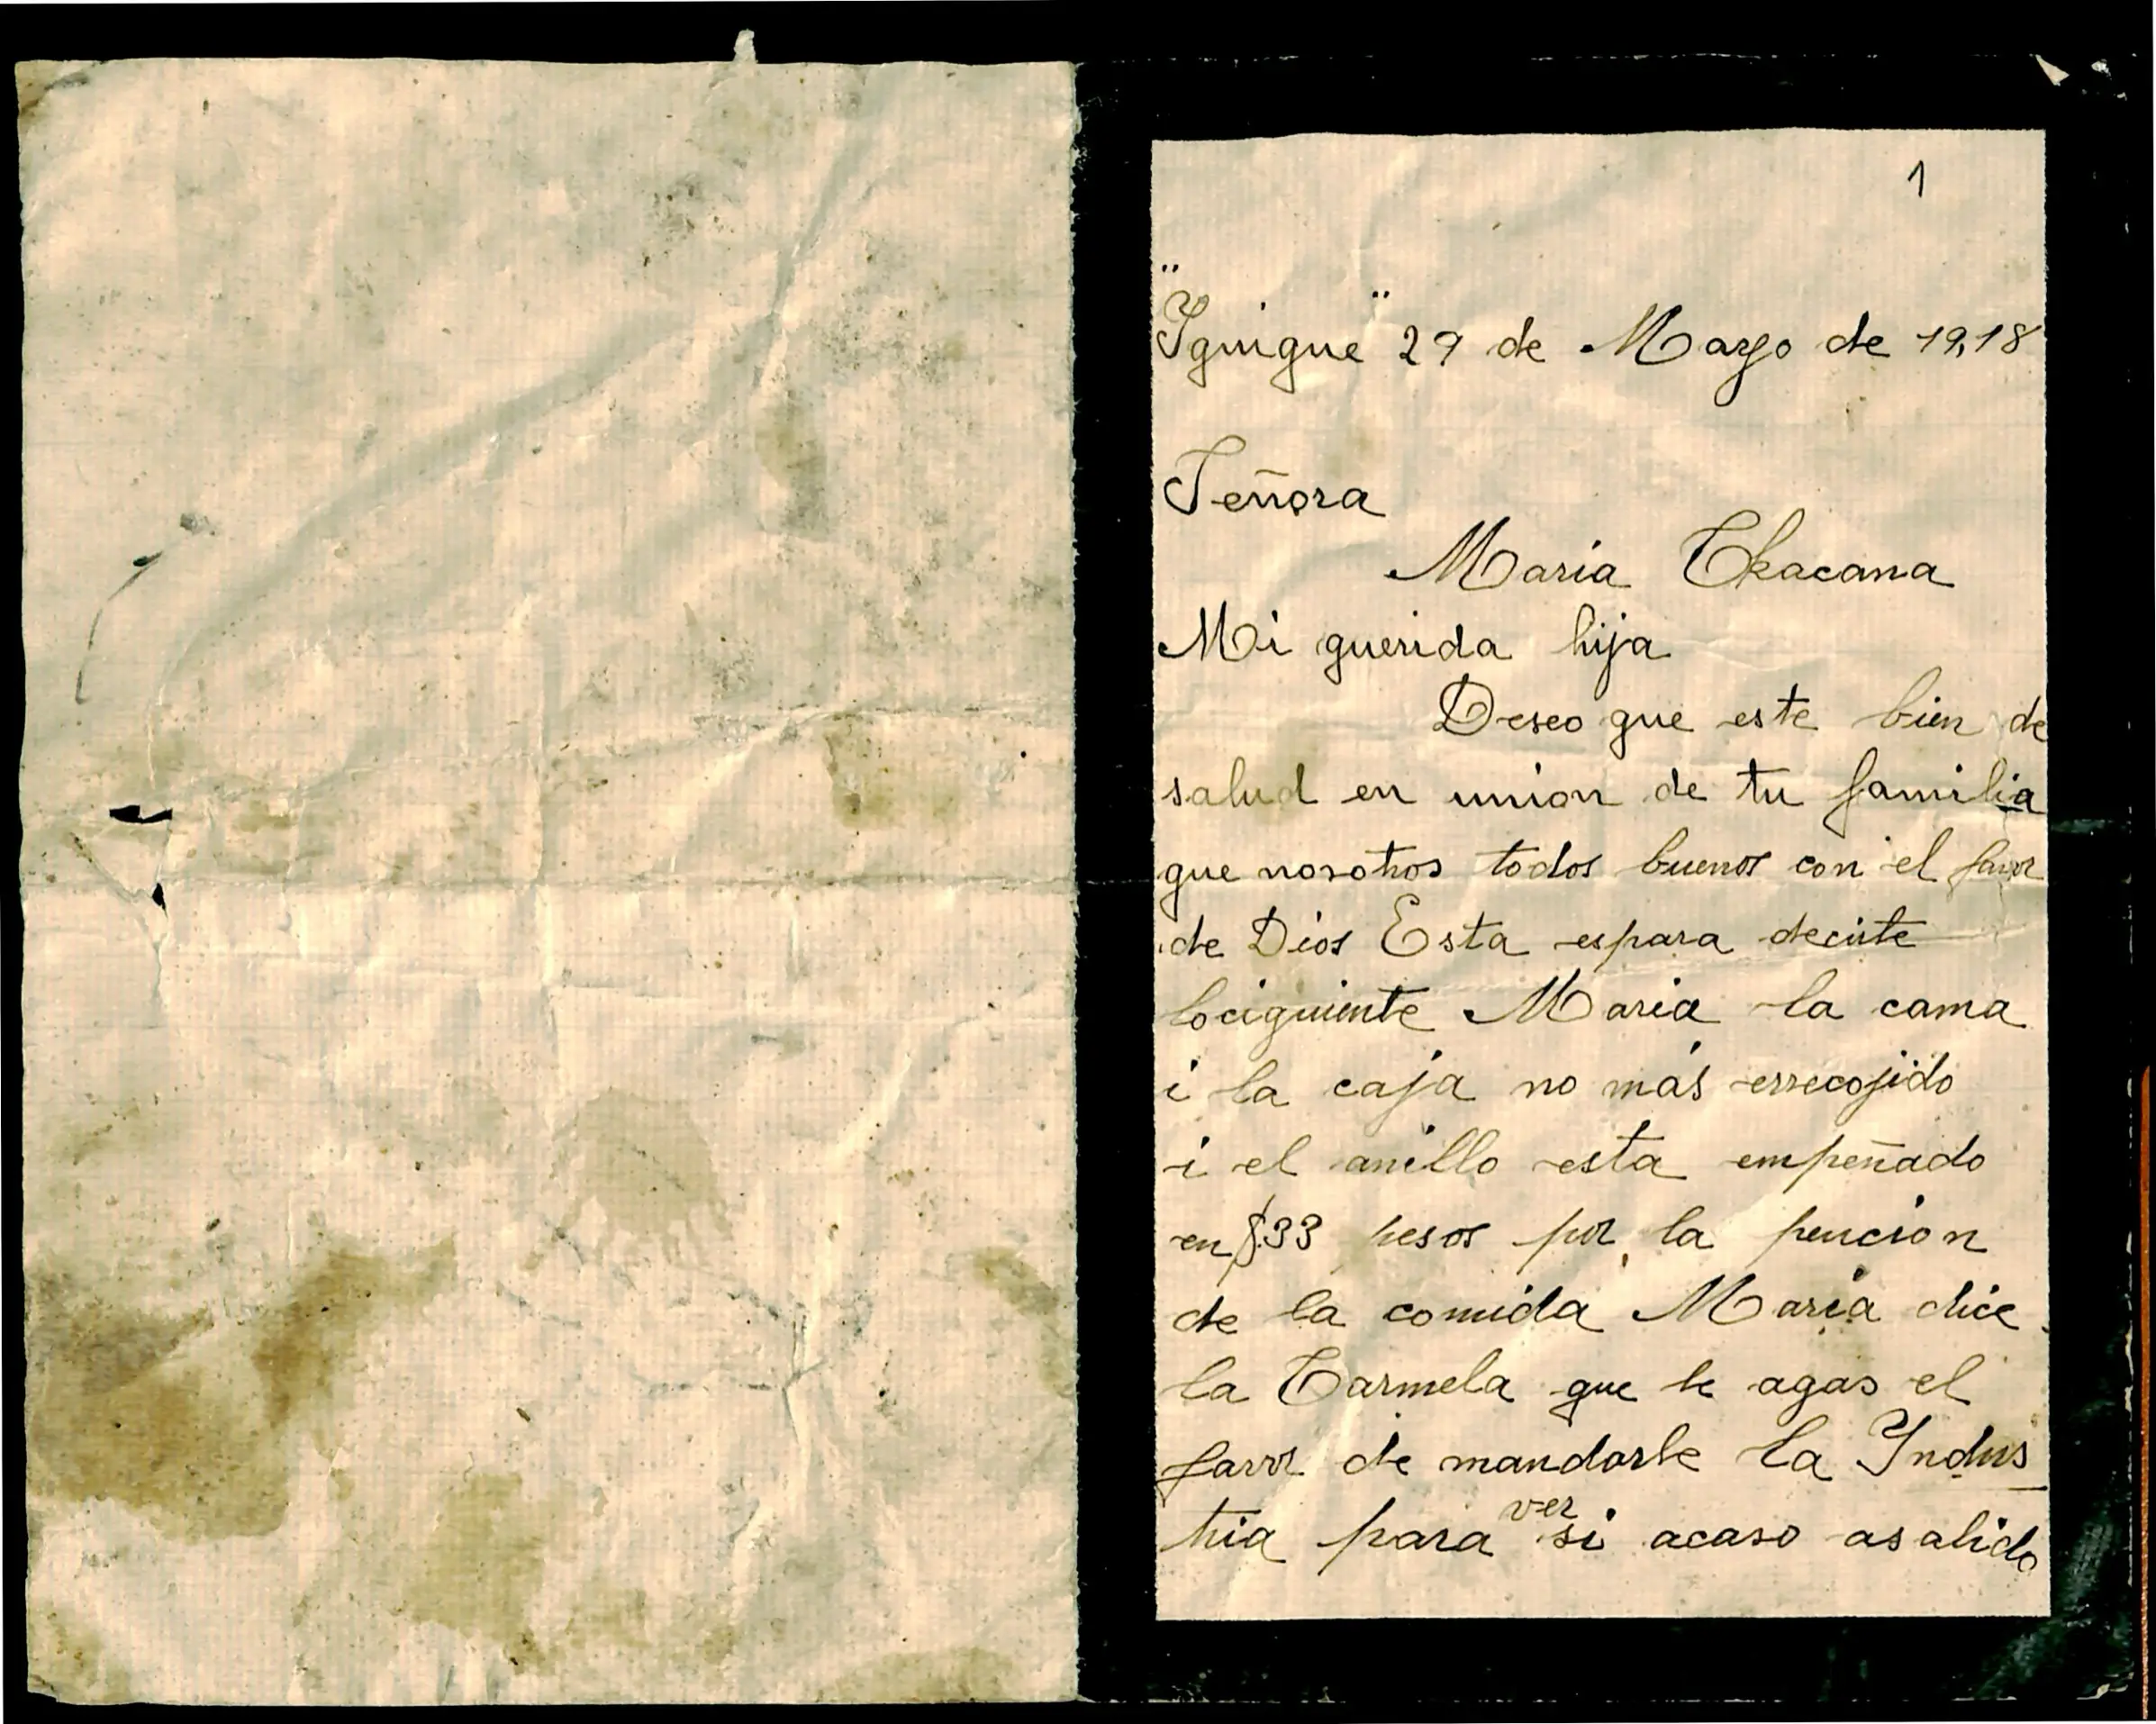 1
"Iquique" 29 de Marzo de 19,18
Señora
Maria Chacana
Mi querida hija
Deseo que este bien de
salud en union de tu familia
que nosotros todos buenos con el favor
de Dios Esta espara decirte
lociguiente Maria la cama
i la caja no más errecojido
i el anillo esta empeñado
en $33 pesos por la pencion
de la comida Maria dice
la Carmela que le agas el
favor de mandarle la Indus
tria para ver si acaso asalido